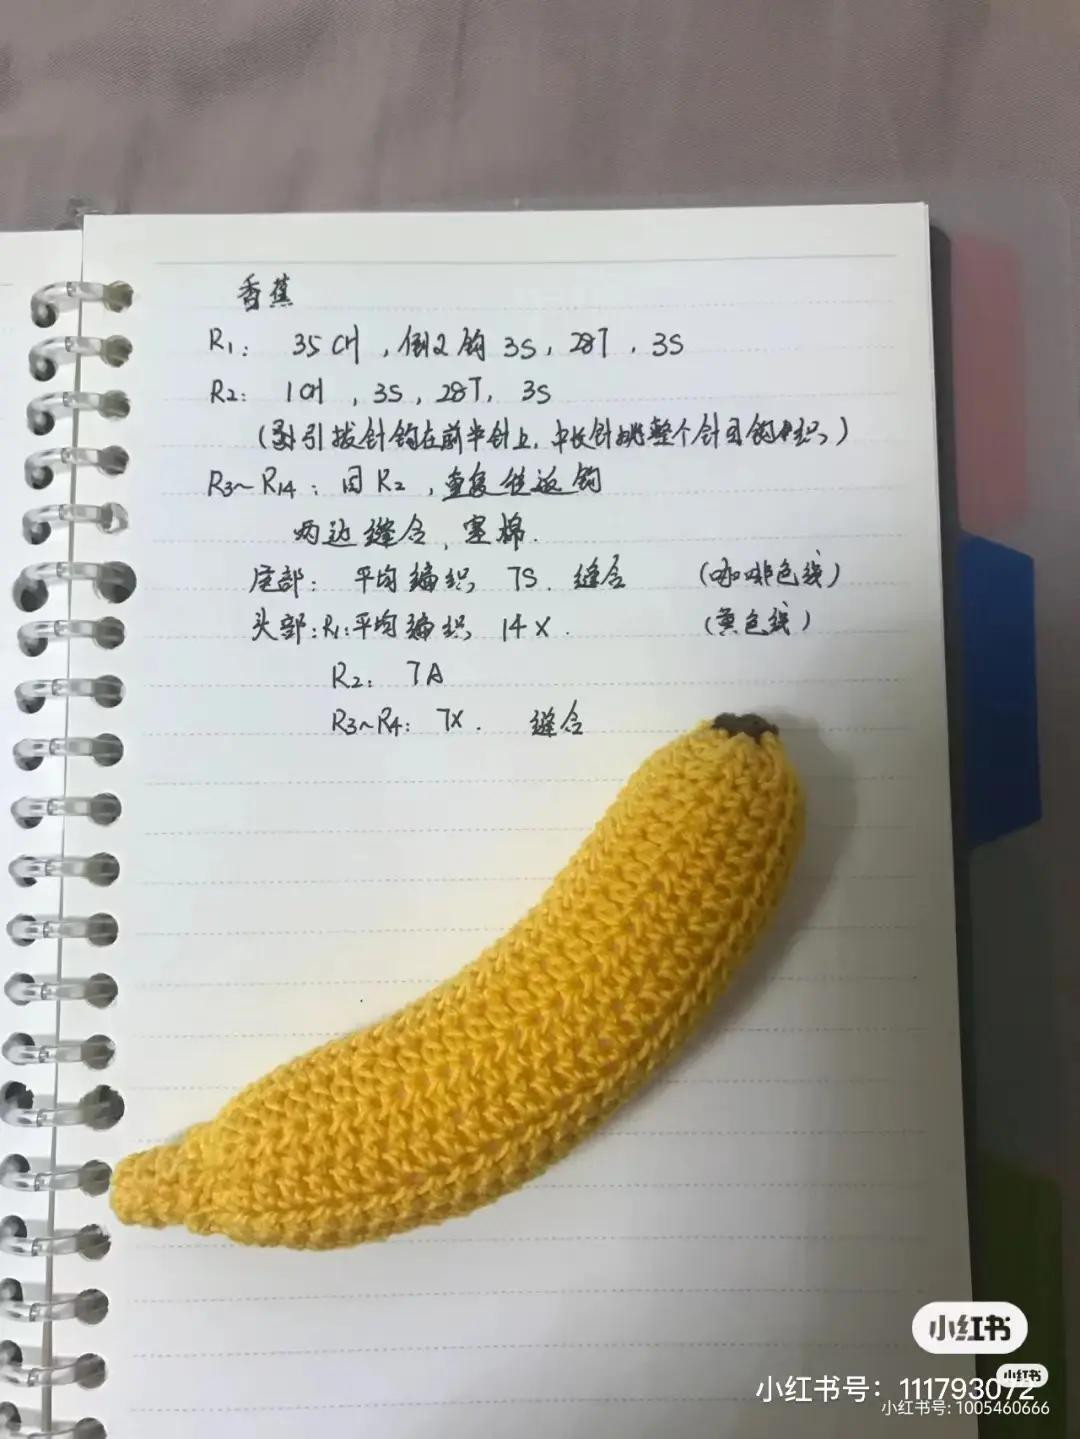 香蕉
R1: 35CH，倒2钩 3S，28T，3S
R2: 1CH，3S，28T，3S
（引拔针钩在前半针上，中长针挑整个针目钩织）
R3~R14：同R2，重复往返钩
两边缝合，塞棉.
底部：平均编织 7S. 缝合 （咖啡色线）
头部：R1:平均编织 14X. （黄色线）
R2: 7A
R3~R4: 7X. 缝合
小红书
小红书
小红书号：111793072
小红书号: 1005460666